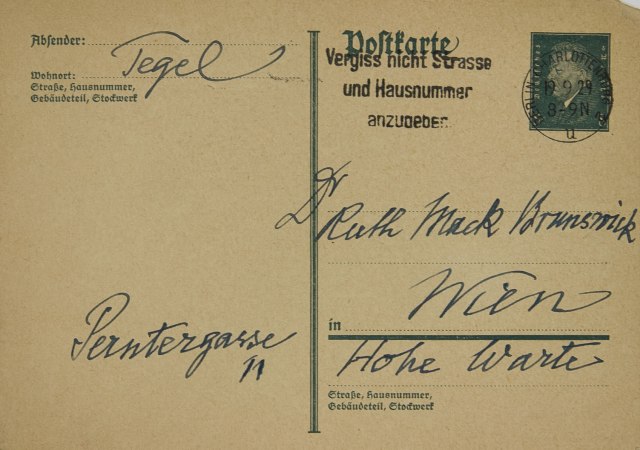 Absender:
Tegel
Wohnort:
Straße, Hausnummer,
Gebäudeteil, Stockwerk
Perntergasse
11
Postkarte
Vergiss nicht Strasse
und Hausnummer
anzugeben
BERLIN-CHARLOTTENBURG
19.9.29
8-9N
u
Dr
Ruth Mack Brunswick
Wien
in
Hohe Warte
Straße, Hausnummer,
Gebäudeteil, Stockwerk